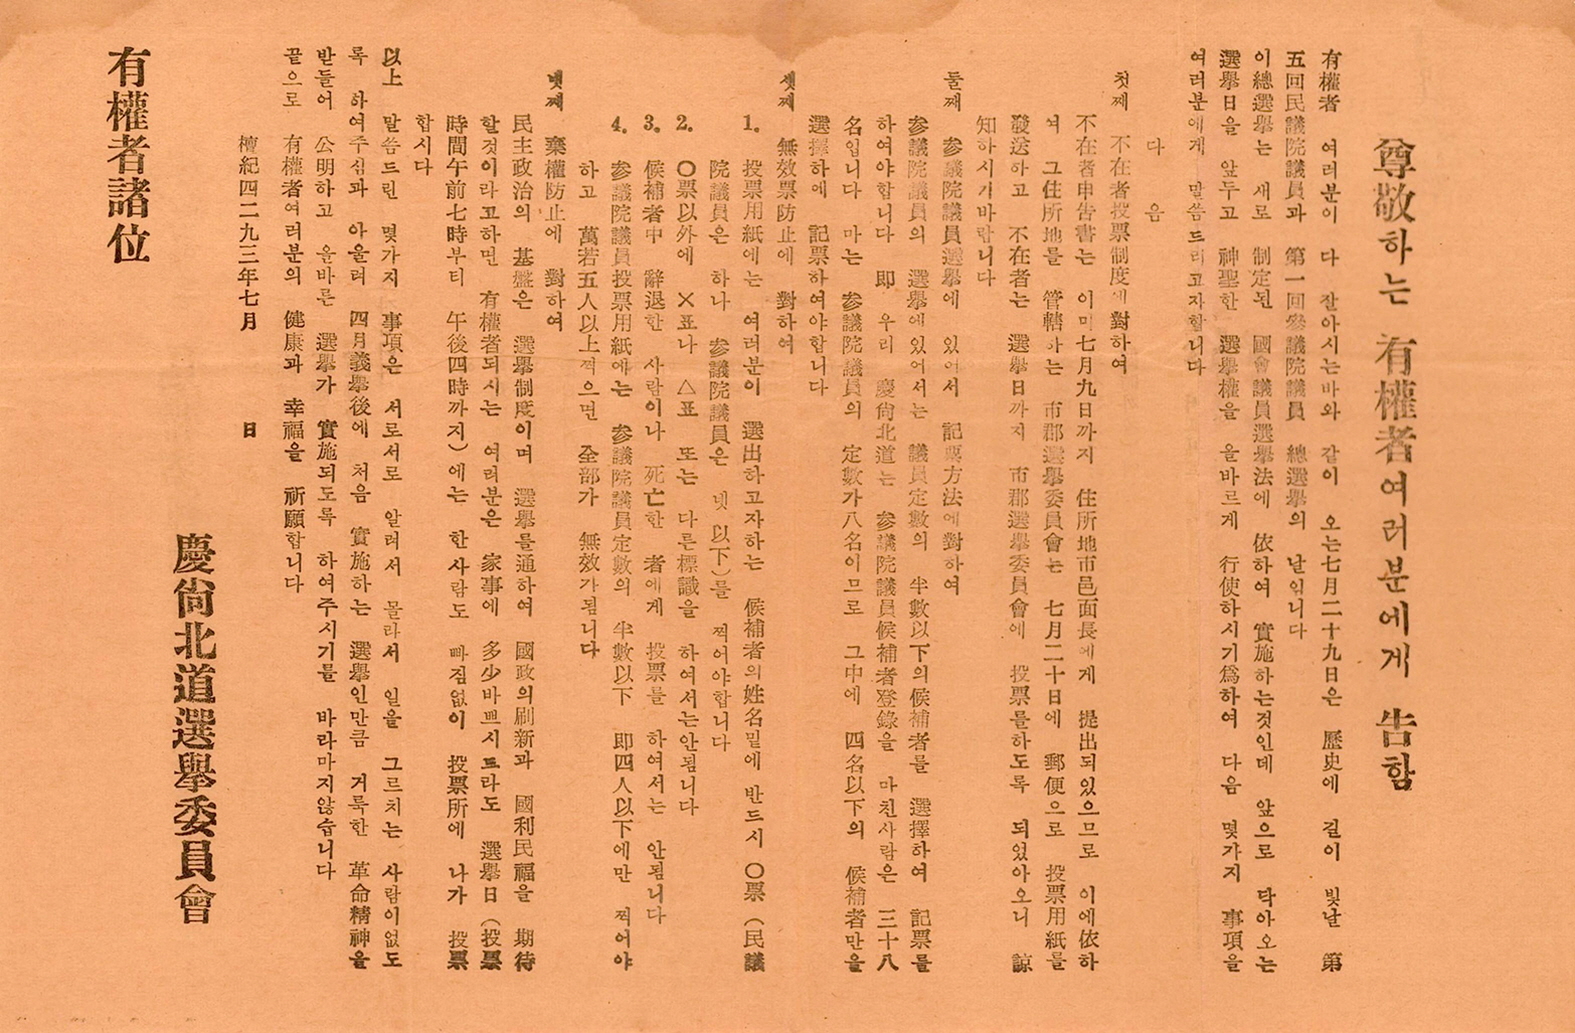 尊敬하는 有權者여러분에게 告함
有權者 여러분이 다 잘아시는바와 같이 오는七月二十九日은 歷史에 길이 빛날 第
五回民議院議員과 第一回參議院議員 總選擧의 날입니다
이總選擧는 새로 制定된 國會議員選擧法에 依하여 實施하는것인데 앞으로 닥아오는
選擧日을 앞두고 神聖한 選擧權을 올바르게 行使하시기爲하여 다음 몇가지 事項을
여러분에게 말씀드리고자합니다
다음
첫째 不在者投票制度에對하여
不在者申告書는 이미七月九日까지 住所地市邑面長에게 提出되있으므로 이에依하
여 그住所地를 管轄하는 市郡選擧委員會는 七月二十日에 郵便으로 投票用紙를
發送하고 不在者는 選擧日까지 市郡選擧委員會에 投票를하도록 되었아오니 諒
知하시기바랍니다
둘째 參議院議員選擧에 있어서 記票方法에對하여
參議院議員의 選擧에있어서는 議員定數의 半數以下의候補者를 選擇하여 記票를
하여야합니다 即 우리 慶尙北道는 參議院議員候補者登錄을 마친사람은 三十八
名입니다 마는 參議院議員의 定數가八名이므로 그中에 四名以下의 候補者만을
選擇하에 記票하여야합니다
셋째 無效票防止에 對하여
1. 投票用紙에는 여러분이 選出하고자하는 候補者의姓名밑에 반드시 ○票(民議
院議員은 하나 參議院議員은 넷 以下)를 찍어야합니다
2. ○票以外에 ×표나 △표 또는 다른標識을 하여서는안됩니다
3. 候補者中 辭退한 사람이나 死亡한 者에게 投票를 하여서는 안됩니다
4. 參議院議員投票用紙에는 參議院議員定數의 半數以下 即四人以下에만 찍어야
하고 萬若五人以上찍으면 全部가 無效가됩니다
넷째 棄權防止에 對하여
民主政治의 基盤은 選擧制度이며 選擧를通하여 國政의刷新과 國利民福을 期待
할것이라고하면 有權者되시는 여러분은 家事에 多少바쁘시드라도 選擧日(投票
時間午前七時부터 午後四時까지)에는 한사람도 빠짐없이 投票所에 나가 投票
합시다
以上 말씀드린 몇가지 事項은 서로서로 알려서 몰라서 일을 그르치는 사람이없도
록 하여주심과 아울러 四月義擧後에 처음 實施하는 選擧인만큼 거룩한 革命精神을
받들어 公明하고 올바른 選擧가 實施되도록 하여주시기를 바라마지않습니다
끝으로 有權者여러분의 健康과 幸福을 祈願합니다
檀紀四二九三年七月 日
慶尙北道選擧委員會
有權者諸位